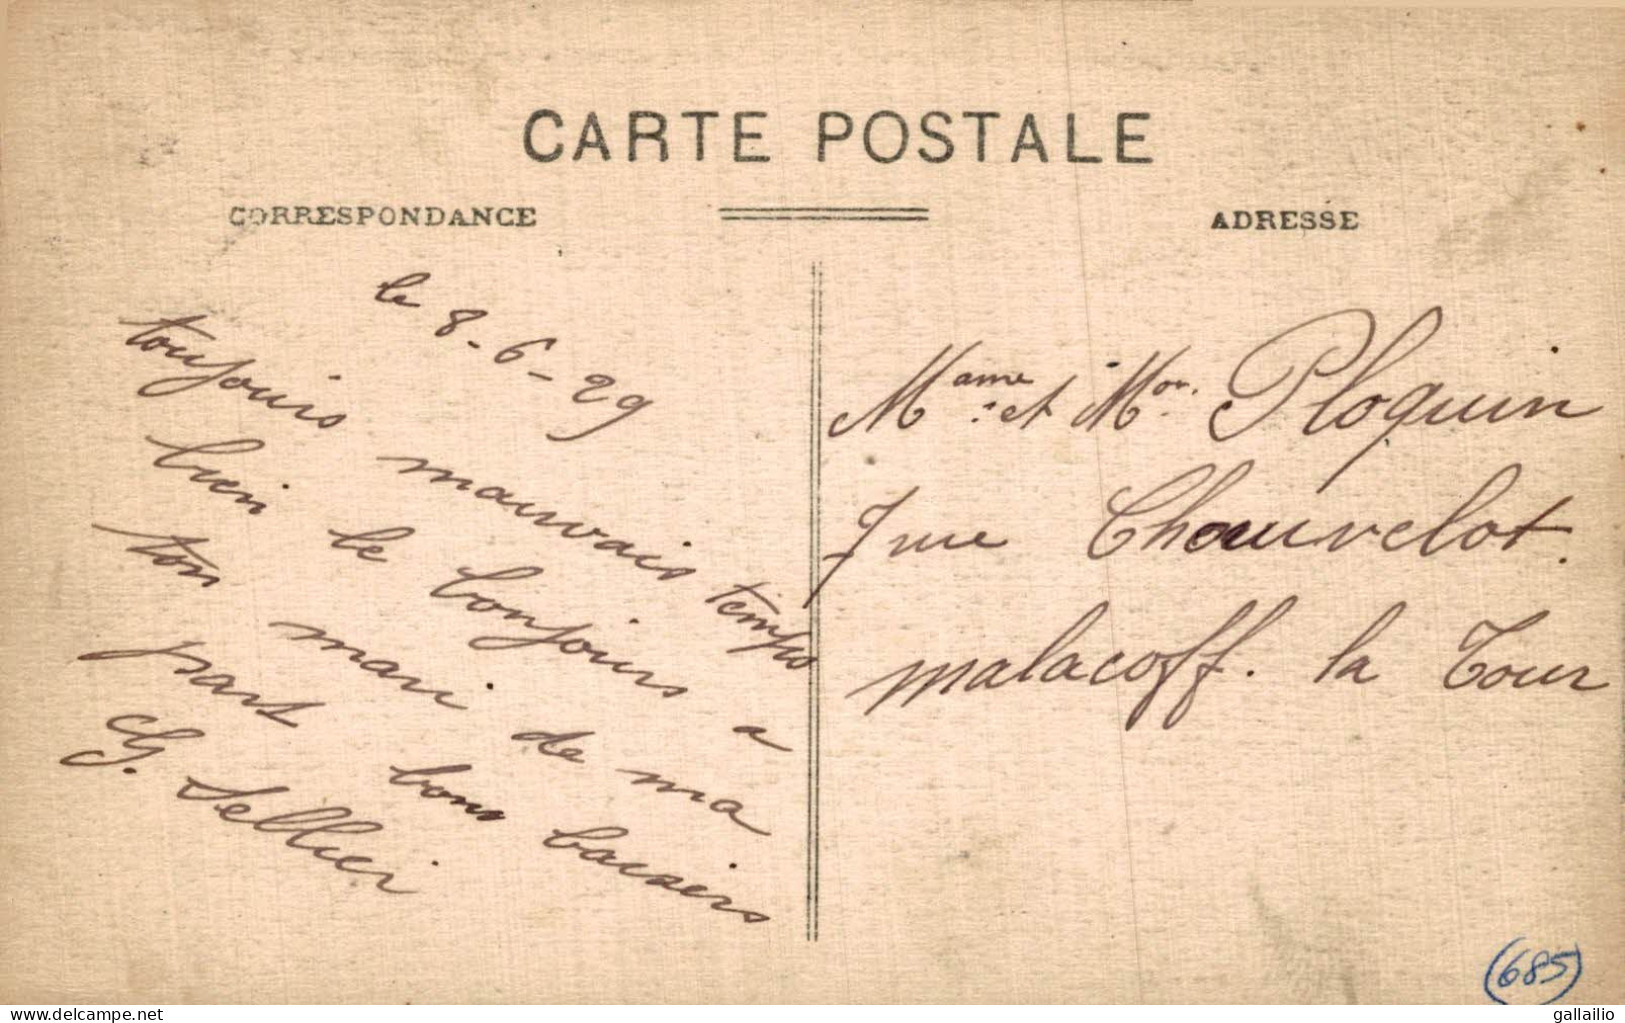 CARTE POSTALE
CORRESPONDANCE
ADRESSE
le 8-6-29
toujours mauvais temps
bien le bonjours a
ton mari de ma
part bons baisers
G. Sellier
Mame et Mon. Ploquin
7 rue Chauvelot.
malacoff. la Tour
(685)
www.delcampe.net
gallailio